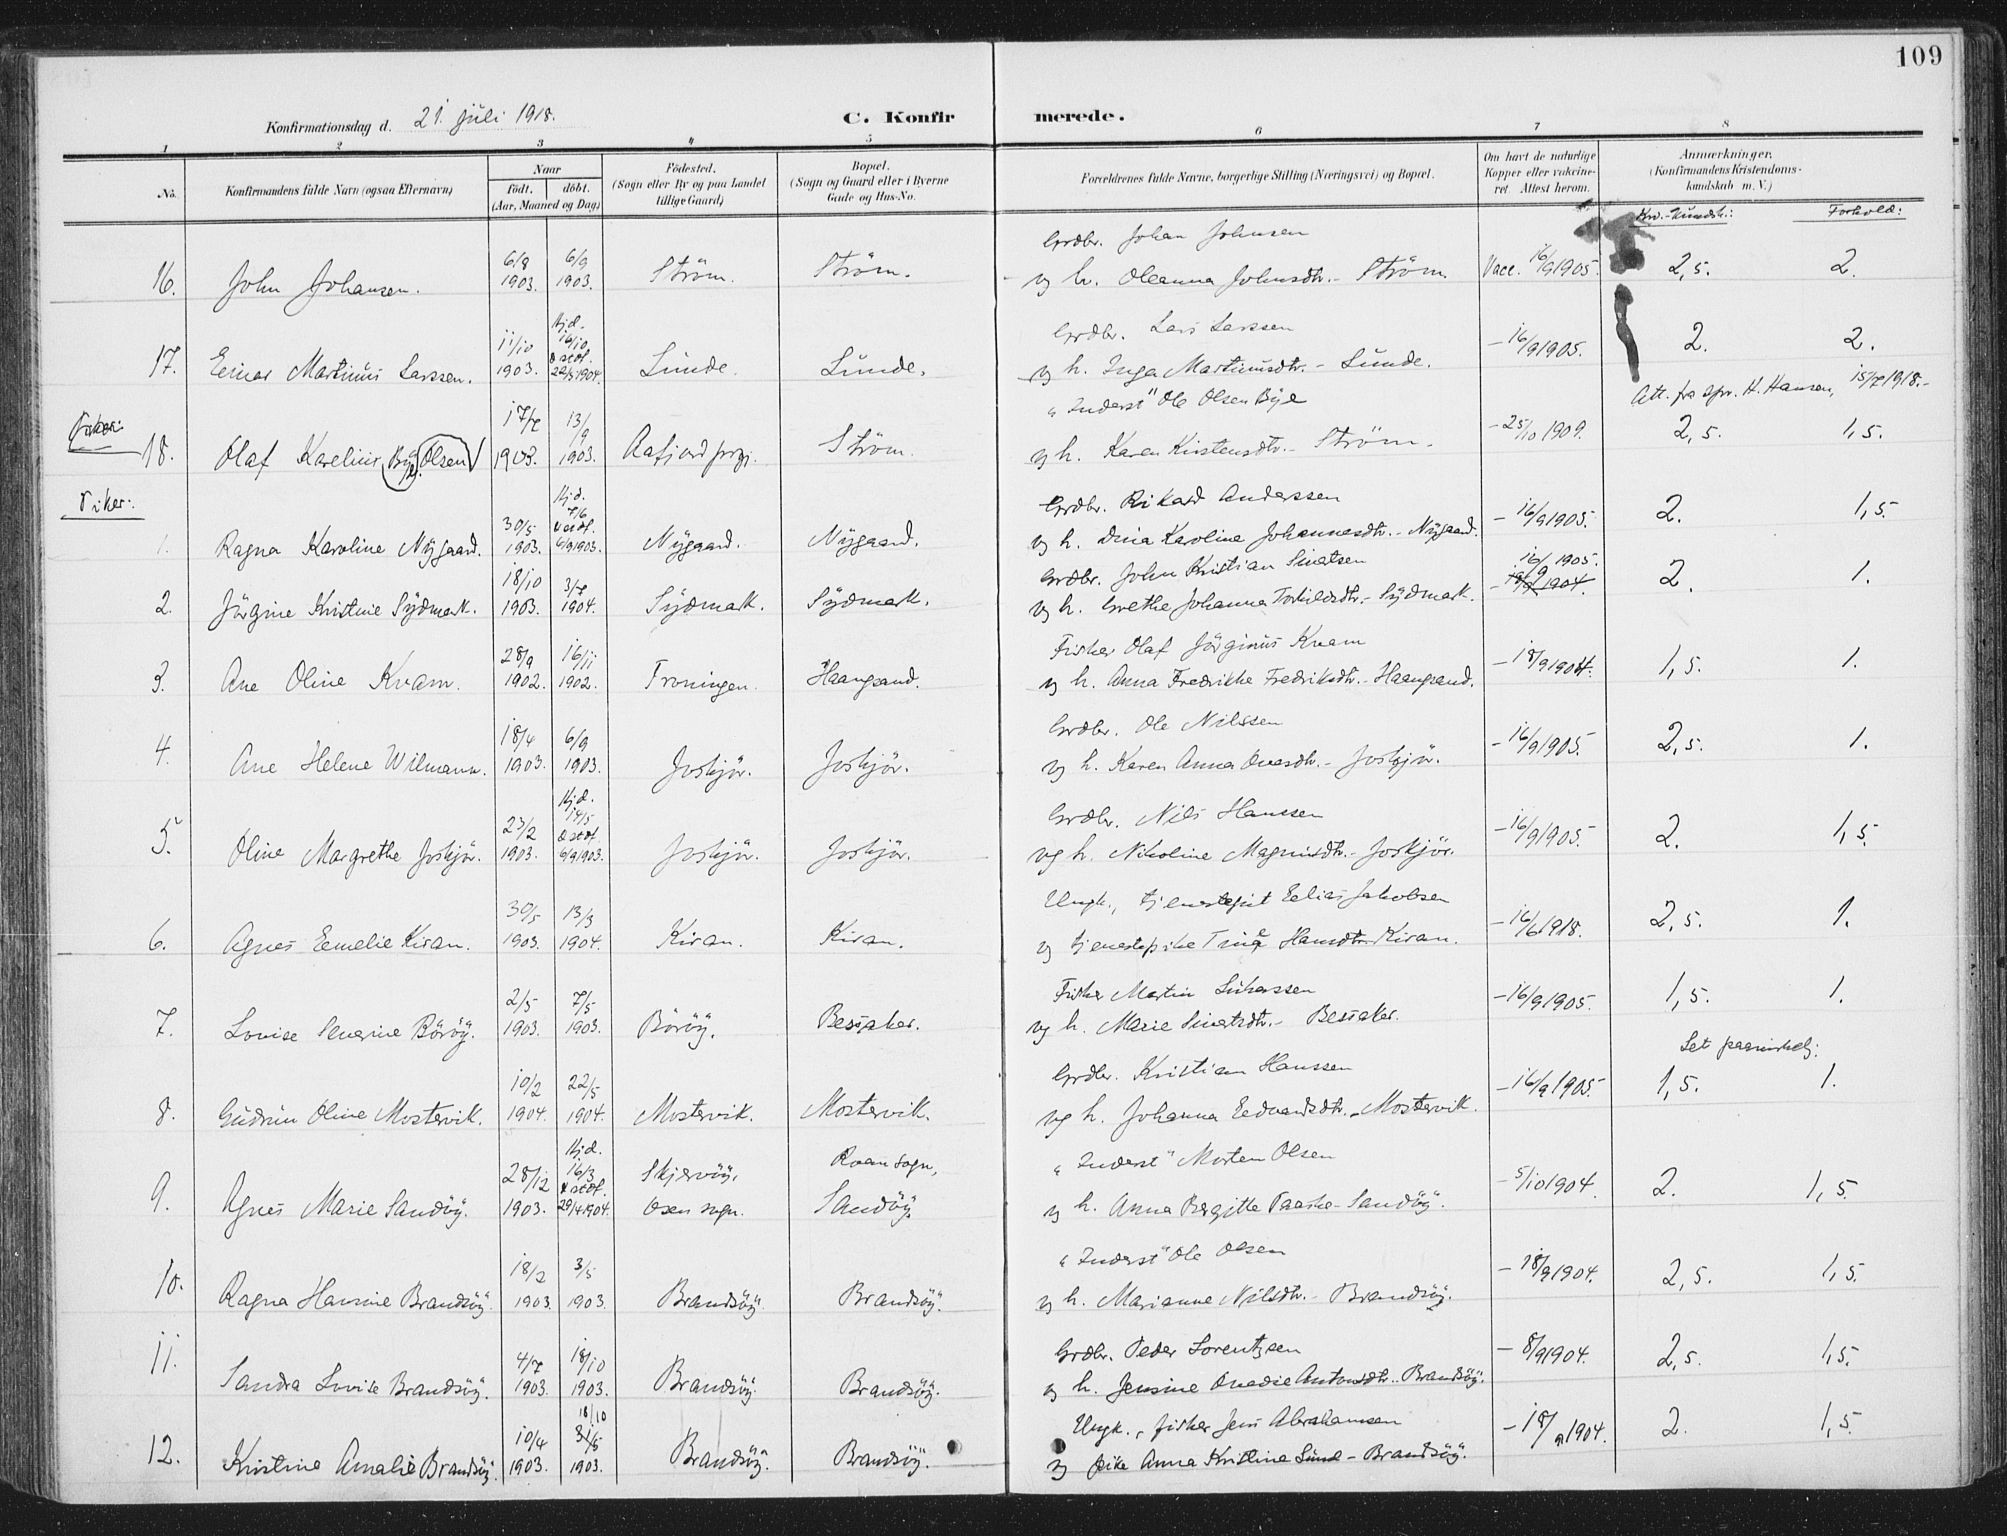 109
Konfirmationsdag d. 21. juli 1918. C. Konfirmerede.
1 2 3 4 5 6 7 8
No. Konfirmandens fulde Navn (ogsaa Efternavn) Naar født. døbt. (Aar, Maaned og Dag) Fødested. (Sogn eller By og paa Landet tillige Gaard) Bopæl. (Sogn og Gaard eller i Byerne Gade og Hus-No. Forældrenes fulde Navne, borgerlige Stilling (Næringsvei) og Bopæl. Om havt de naturlige Kopper eller vakcineret. Attest herom. Anmærkninger. (Konfirmandens Kristendomskundskab m. V.)
Krd.-kundsk.: Forhold:
Grdbr. Johan Johnsen
16. John Johansen. 6/8 1903. 6/9 1903. Ström. Ström. og h. Oleanna Johnsdtr. - Ström. Vacc. 16/9 1905. 2,5. 2.
Grdbr. Lars Larssen
17. Einar Martinus Larssen. 11/10 1903. Hjd. 16/10 stdf. 22/5 1904. Lunde. Lunde. og h. Inga Martinusdtr. - Lunde. - 16/9 1905. 2. 2.
"Inderst" Ole Olsen Bye Att. fra spr. H. Hansen, 15/7 1918.-
18. Olaf Karelius Bye Olsen 17/7 1903. 13/9 1903. Aafjord prgj. Ström. og h. Karen Kristensdtr. - Ström. - 25/10 1909. 2,5. 1,5.
Piker:
Grdbr. Rikard Anderssen
1. Ragna Karoline Nygaard. 30/5 1903. Hjd. 7/6 stdf. 6/9 1903. Nygaard. Nygaard. og h. Dina Karoline Johannesdtr. - Nygaard. - 16/9 1905. 2. 1,5.
Grdbr. John Kristian Sivertsen 16/9 1905.
2. Jörgine Kristine Sydmark. 18/10 1903. 3/7 1904. Sydmark. Sydmark. og h. Grethe Johanna Torkildsdtr. - Sydmark. - 18/9 1904. 2. 1.
Fisker Olaf Jörginus Kvam
3. Ane Oline Kvam. 28/9 1902. 16/11 1902. Froningen. Haangsand. og h. Anna Fredrikke Fredriksdtr. - Haangsand. - 18/9 1904. 1,5. 1.
Grdbr. Ole Nilssen
4. Ane Helene Wilmann. 18/4 1903. 6/9 1903. Joskjör. Joskjör. og h. Karen Anna Ovesdtr. - Joskjör. - 16/9 1905. 2,5. 1.
Grdbr. Nils Hanssen
5. Oline Margrethe Joskjör. 23/2 1903. Hjd. 14/5 stdf. 6/9 1903. Joskjör. Joskjör. og h. Nikoline Magnusdtr. - Joskjör. - 16/9 1905. 2. 1,5.
Ungk., tjenestegut Eelias Jakobsen
6. Agnes Eemelie Kiran. 30/5 1903. 13/3 1904. Kiran. Kiran. og tjenestepike Trina Hansdtr. Kiran. - 16/6 1918. 2,5. 1.
Fisker Martin
7. Lovise Severine Böröy. 2/5 1903. 7/5 1903. Böröy. Bessaker. og h. Marie Sivertsdtr. - Bessaker. - 16/9 1905. 1,5. 1.
Grdbr. Kristian Hanssen
8. Gudrun Oline Mostervik. 10/2 1904. 22/5 1904. Mostervik. Mostervik. og h. Johanna Eedvardsdtr. - Mostervik. - 16/9 1905 1,5. 1.
"Inderst" Morten Olsen
9. Agnes Marie Sandöy. 28/12 1903. Hjd. 16/3 stdf. 29/4 1904. Skjervöy, Osen sogn. Roan sogn, Sandöy. og h. Anna Bergitte Paaske - Sandöy. - 5/10 1904. 2. 1,5.
"Inderst" Ole Olsen
10. Ragna Hansine Brandsöy. 18/2 1903. 3/5 1903. Brandsöy. Brandsöy. og h. Marianne Nilsdtr. - Brandsöy. - 18/9 1904. 2,5. 1,5.
Grdbr. Peder Lorentzen
11. Sandra Lovise Brandsöy. 4/7 1903. 18/10 1903. Brandsöy. Brandsöy. og h. Jensine Antonsdtr. Brandsöy. - 8/9 1904. 2,5. 1,5.
Ungk., fisker Jens Abrahamsen
12. Kristine Amalie Brandsöy. 10/4 1903. 18/10 31/5 1903. Brandsöy. Brandsöy. og pike Anna Kristine Lund - Brandsöy. - 18/9 1904. 2. 1,5.